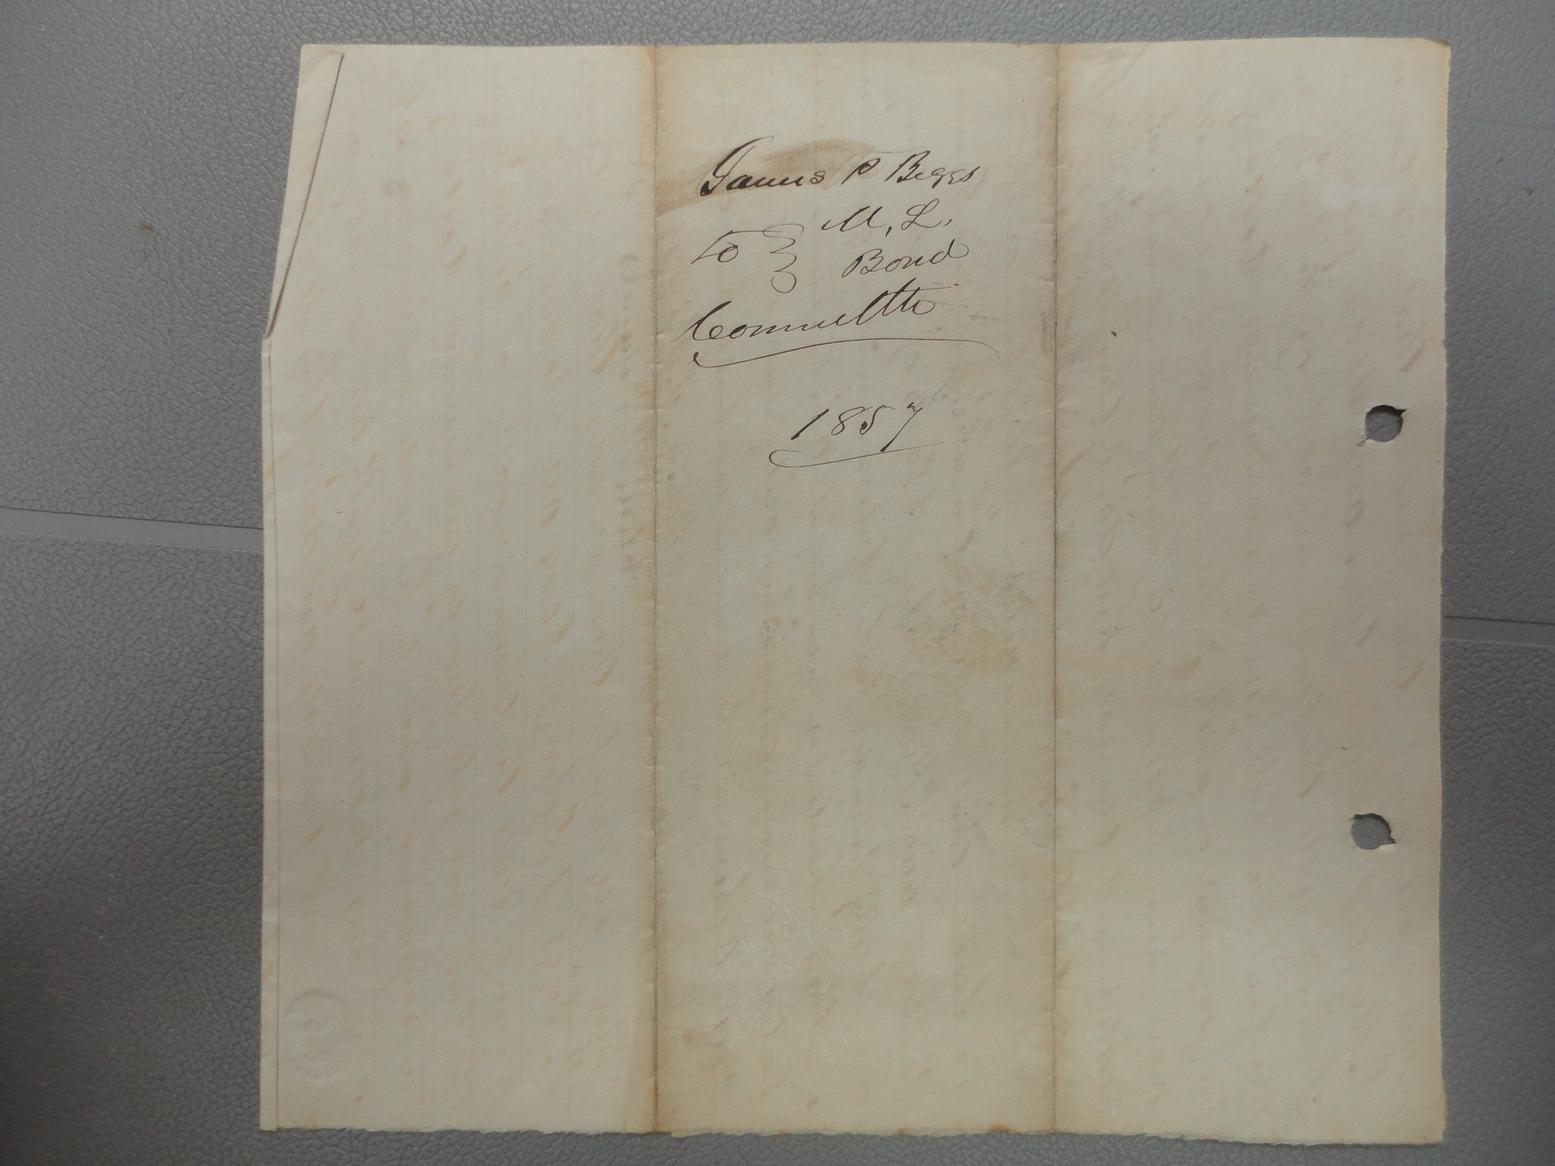 James P Beggs
M, L.
to Bond
Committe
1857